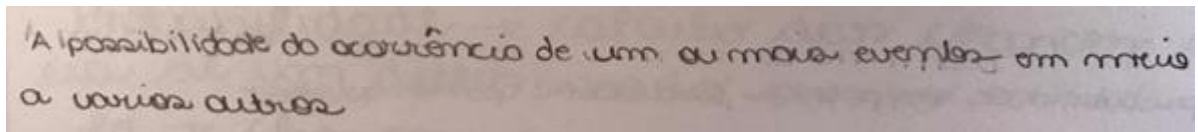 A possibilidade da ocorrência de um ou mais eventos em meio
a varios outros